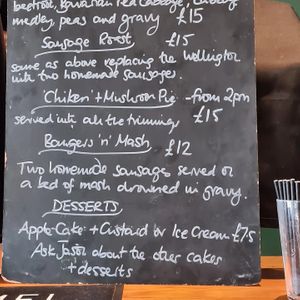 beetroot, Bavarian red cabbage,
medley, peas and gravy £15
Sausage Roast £15
same as above replacing the Wellington
with two homemade sausages.
'Chiken' + Mushroom Pie - from 2pm
served with all the trimmings £15
Bangers 'n' Mash £12
Two homemade sausages served on
a bed of mash drowned in gravy.
DESSERTS
Apple Cake + Custard or Ice Cream £7.5
Ask Jason about the other cakes
+ desserts